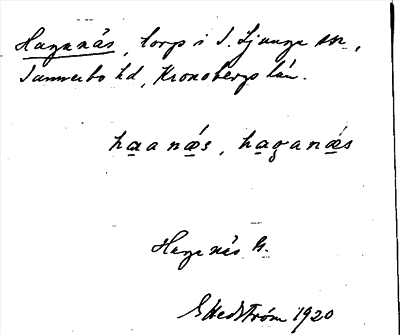 Haganäs, torp i S. Ljunga sn,
Sunnerbo hd, Kronobergs län.
haanǽs, haganǽs
Haganäs G.
E Hedström 1920